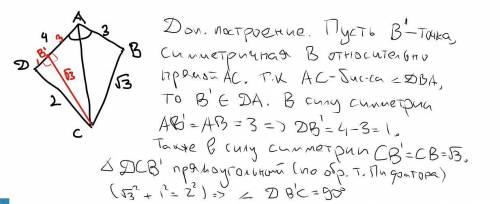 A
4
3
3
B'
B
D
√3
√3
2
C
Доп. построение. Пусть B' – точка,
симметричная B относительно
прямой AC. т.к AC-бис-са ∠DBA,
то B' ∈ DA. В силу симметрии
AB' = AB = 3 => DB' = 4-3 = 1.
Также в силу симметрии CB' = CB = √3.
△ DCB' прямоугольный (по обр. т. Пифагора)
(√3² + 1² = 2²) => ∠ DB'C = 90°